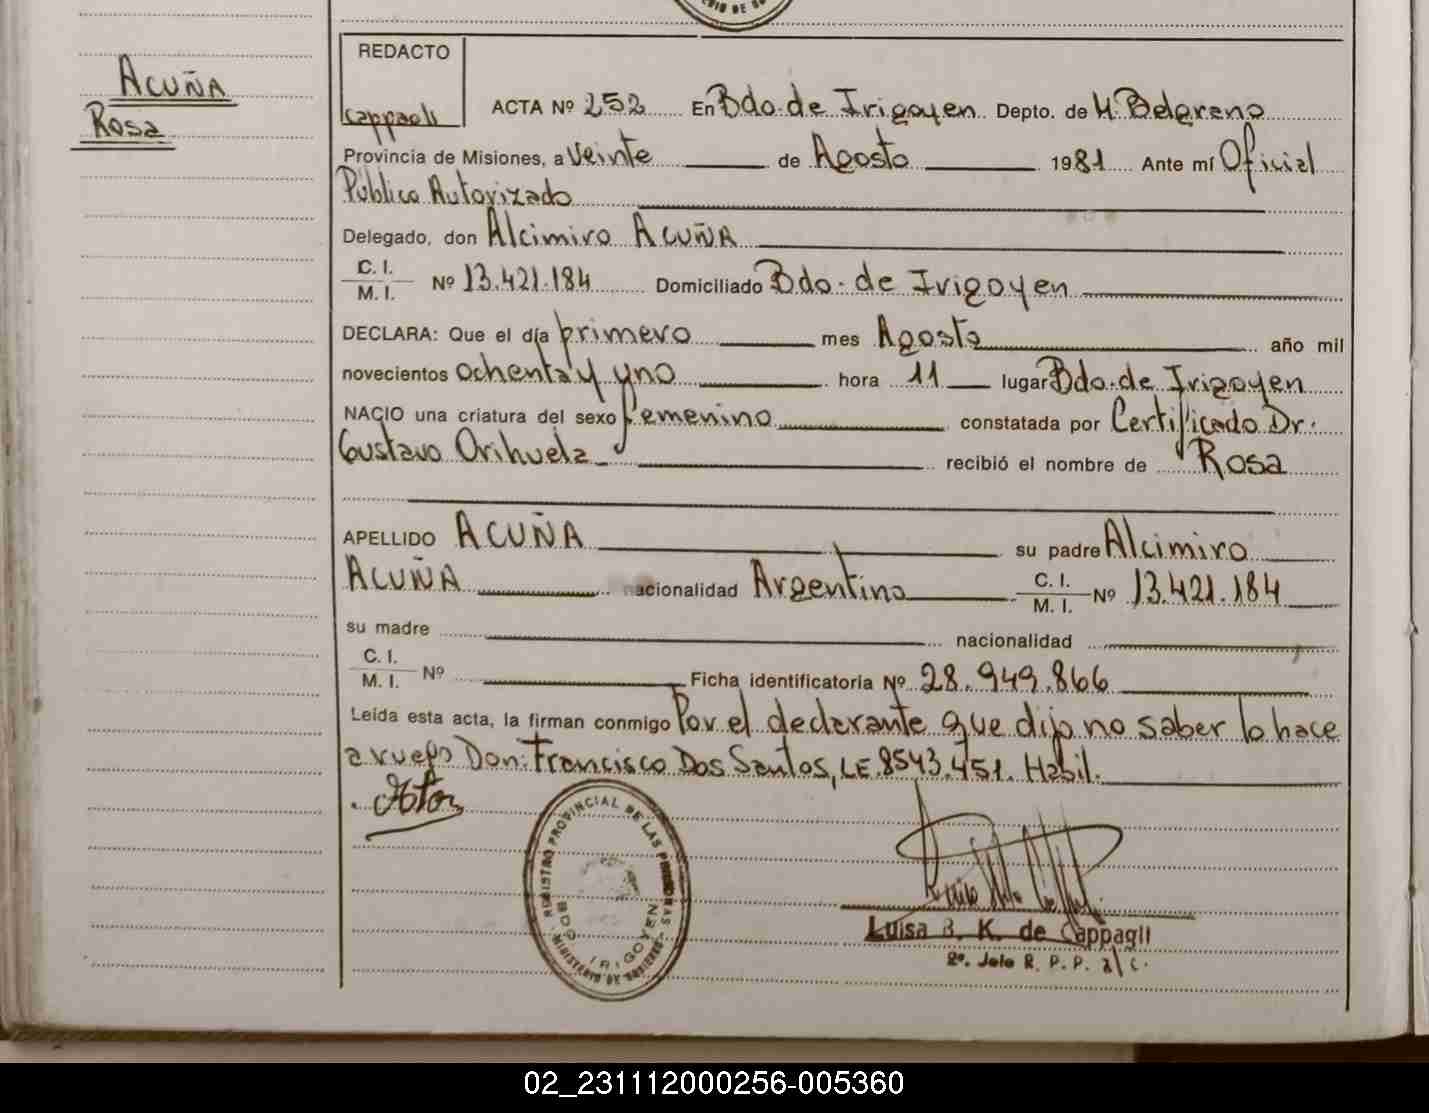 ACUÑA
Rosa
REDACTO
Cappaoli
ACTA Nº 252 En Bdo. de Irigoyen Depto. de M. Belgrano
Provincia de Misiones, a Veinte de Agosto 1981 Ante mí Oficial
Público Autorizado
Delegado, don Alcimiro ACUÑA
C. I.
M. I. Nº 13.421.184 Domiciliado Bdo. de Irigoyen
DECLARA: Que el día primero mes Agosto año mil
novecientos ochenta y uno hora 11 lugar Bdo. de Irigoyen
NACIO una criatura del sexo femenino constatada por Certificado Dr.
Gustavo Orihuela recibió el nombre de Rosa
APELLIDO ACUÑA su padre Alcimiro
ACUÑA nacionalidad Argentino C. I.
M. I. Nº 13.421.184
su madre nacionalidad
C. I.
M. I. Nº Ficha identificatoria Nº 28.949.866
Leída esta acta, la firman conmigo Por el declarante que dijo no saber lo hace
a ruego Don: Francisco Dos Santos, LE.8543.451. Habil.
REGISTRO PROVINCIAL DE LAS PERSONAS
BDO IRIGOYEN
MINISTERIO DE GOBIERNO
Luisa B. K. de Cappagli
2º. Jefe R. P. P. a/c.
02_231112000256-005360